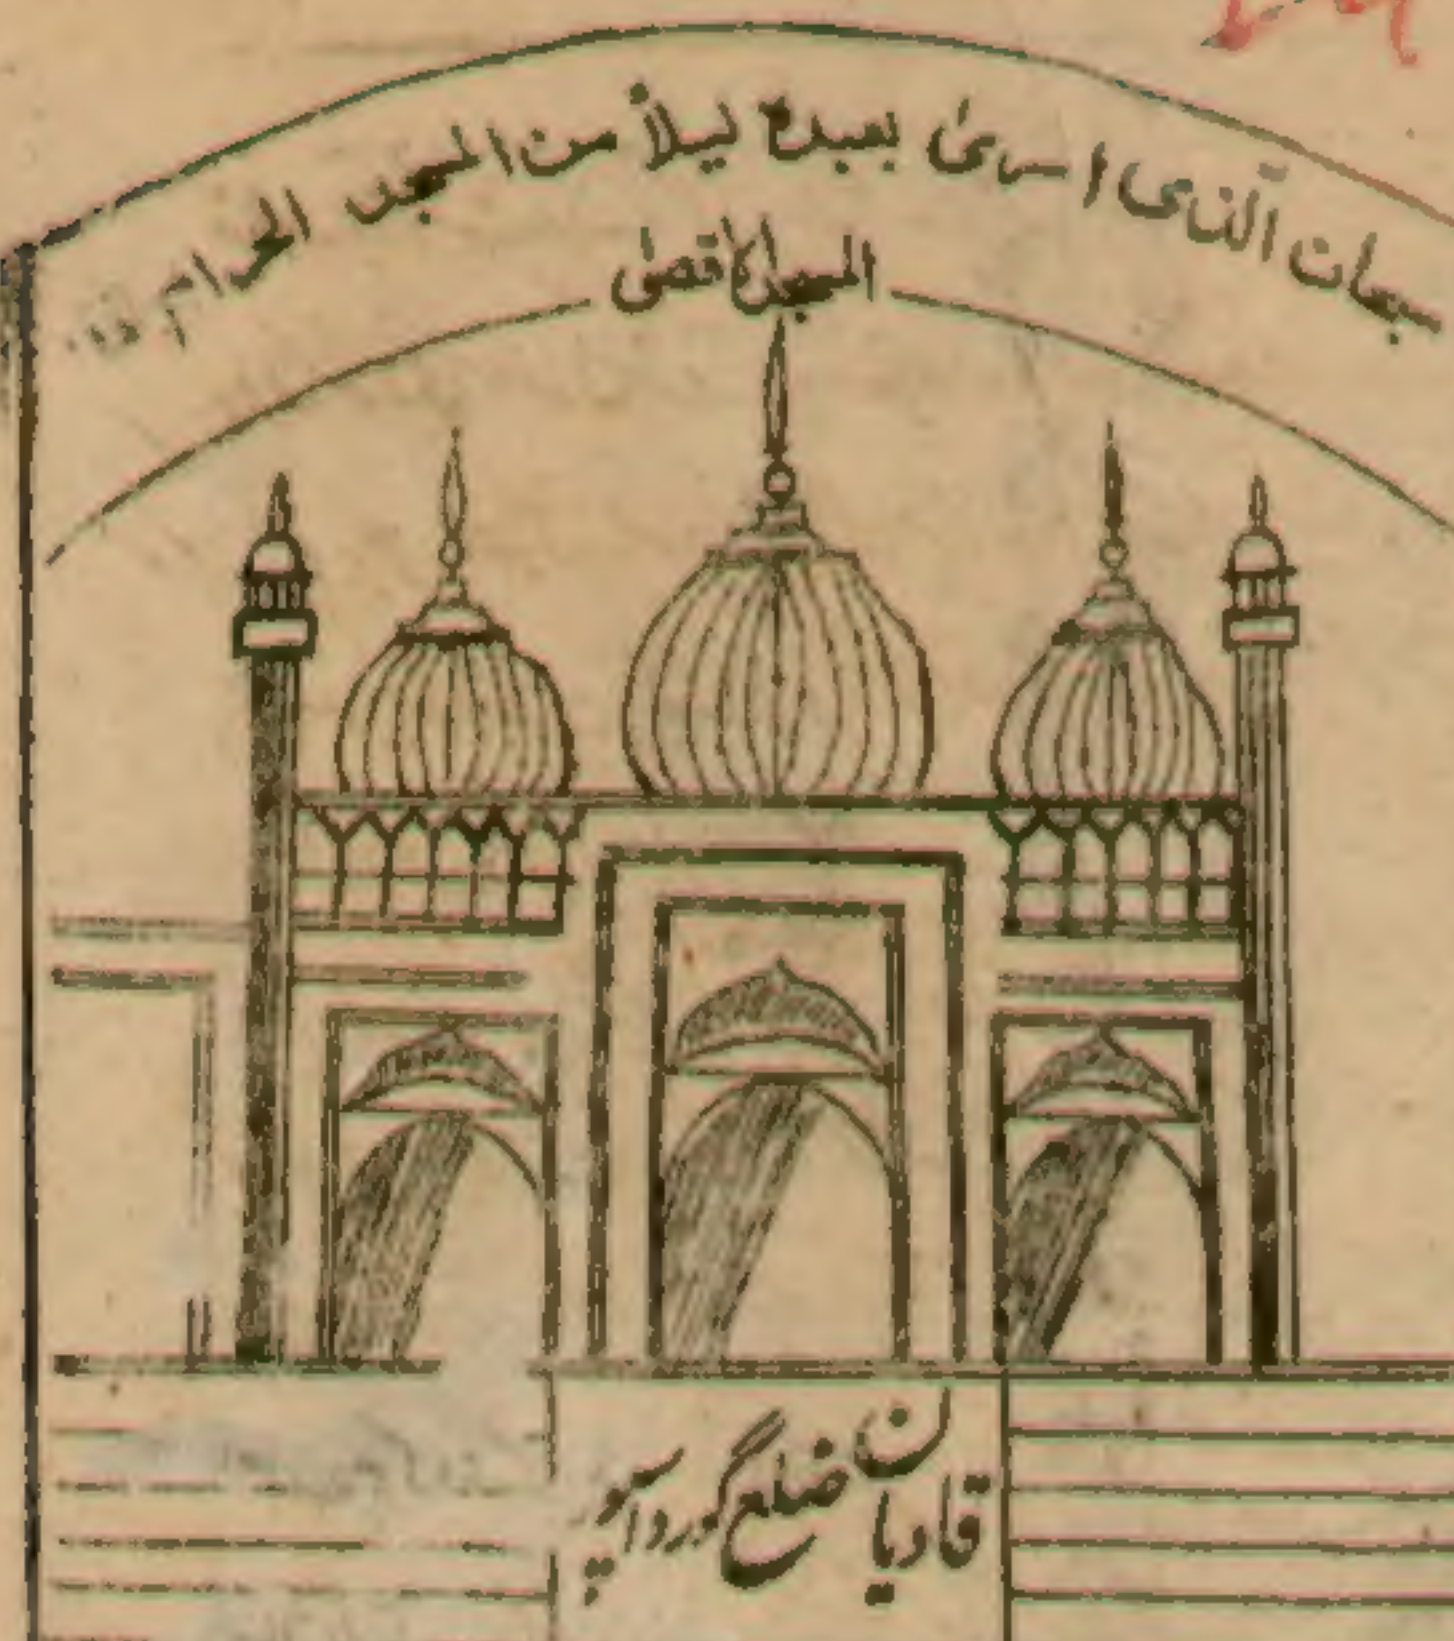 سبحان الّذی اسریٰ بعبدہ لیلاً من المسجد الحرام
المسجد الاقصیٰ
قادیان ضلع گورداسپور